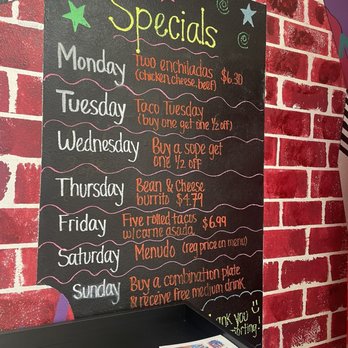 Specials
Monday Two enchiladas $6.30
(chicken, cheese, beef)
Tuesday Taco Tuesday
(buy one get one ½ off)
Wednesday Buy a sope get
one ½ off
Thursday Bean & Cheese
burrito $4.79
Friday Five rolled tacos $6.99
w/carne asada
Saturday Menudo (reg price on menu)
Sunday Buy a combination plate
& receive free medium drink
you